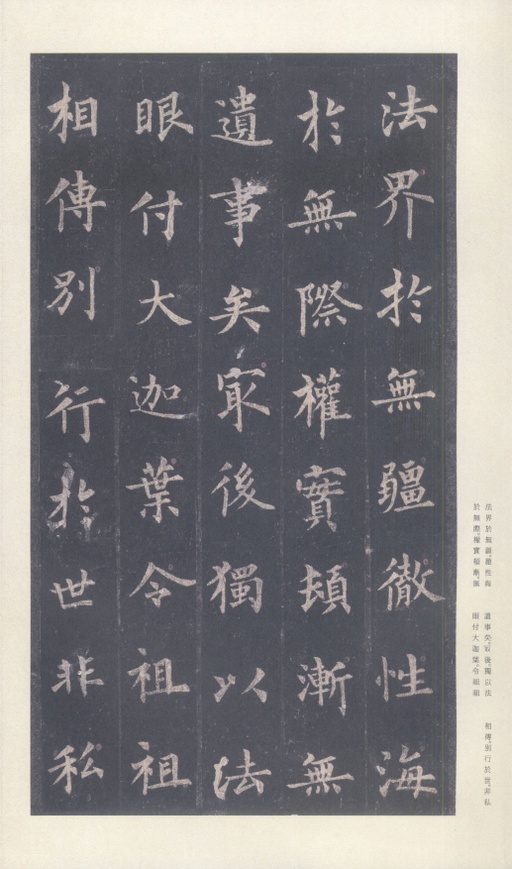 法界於無疆徹性海
於無際權實頓漸無
遺事矣冣後獨以法
眼付大迦葉令祖祖
相傳別行於世非私
法界於無疆,徹性海
於無際,權實頓漸,無
遺事矣。冣後獨以法
眼付大迦葉,令祖祖
相傳,別行於世,非私